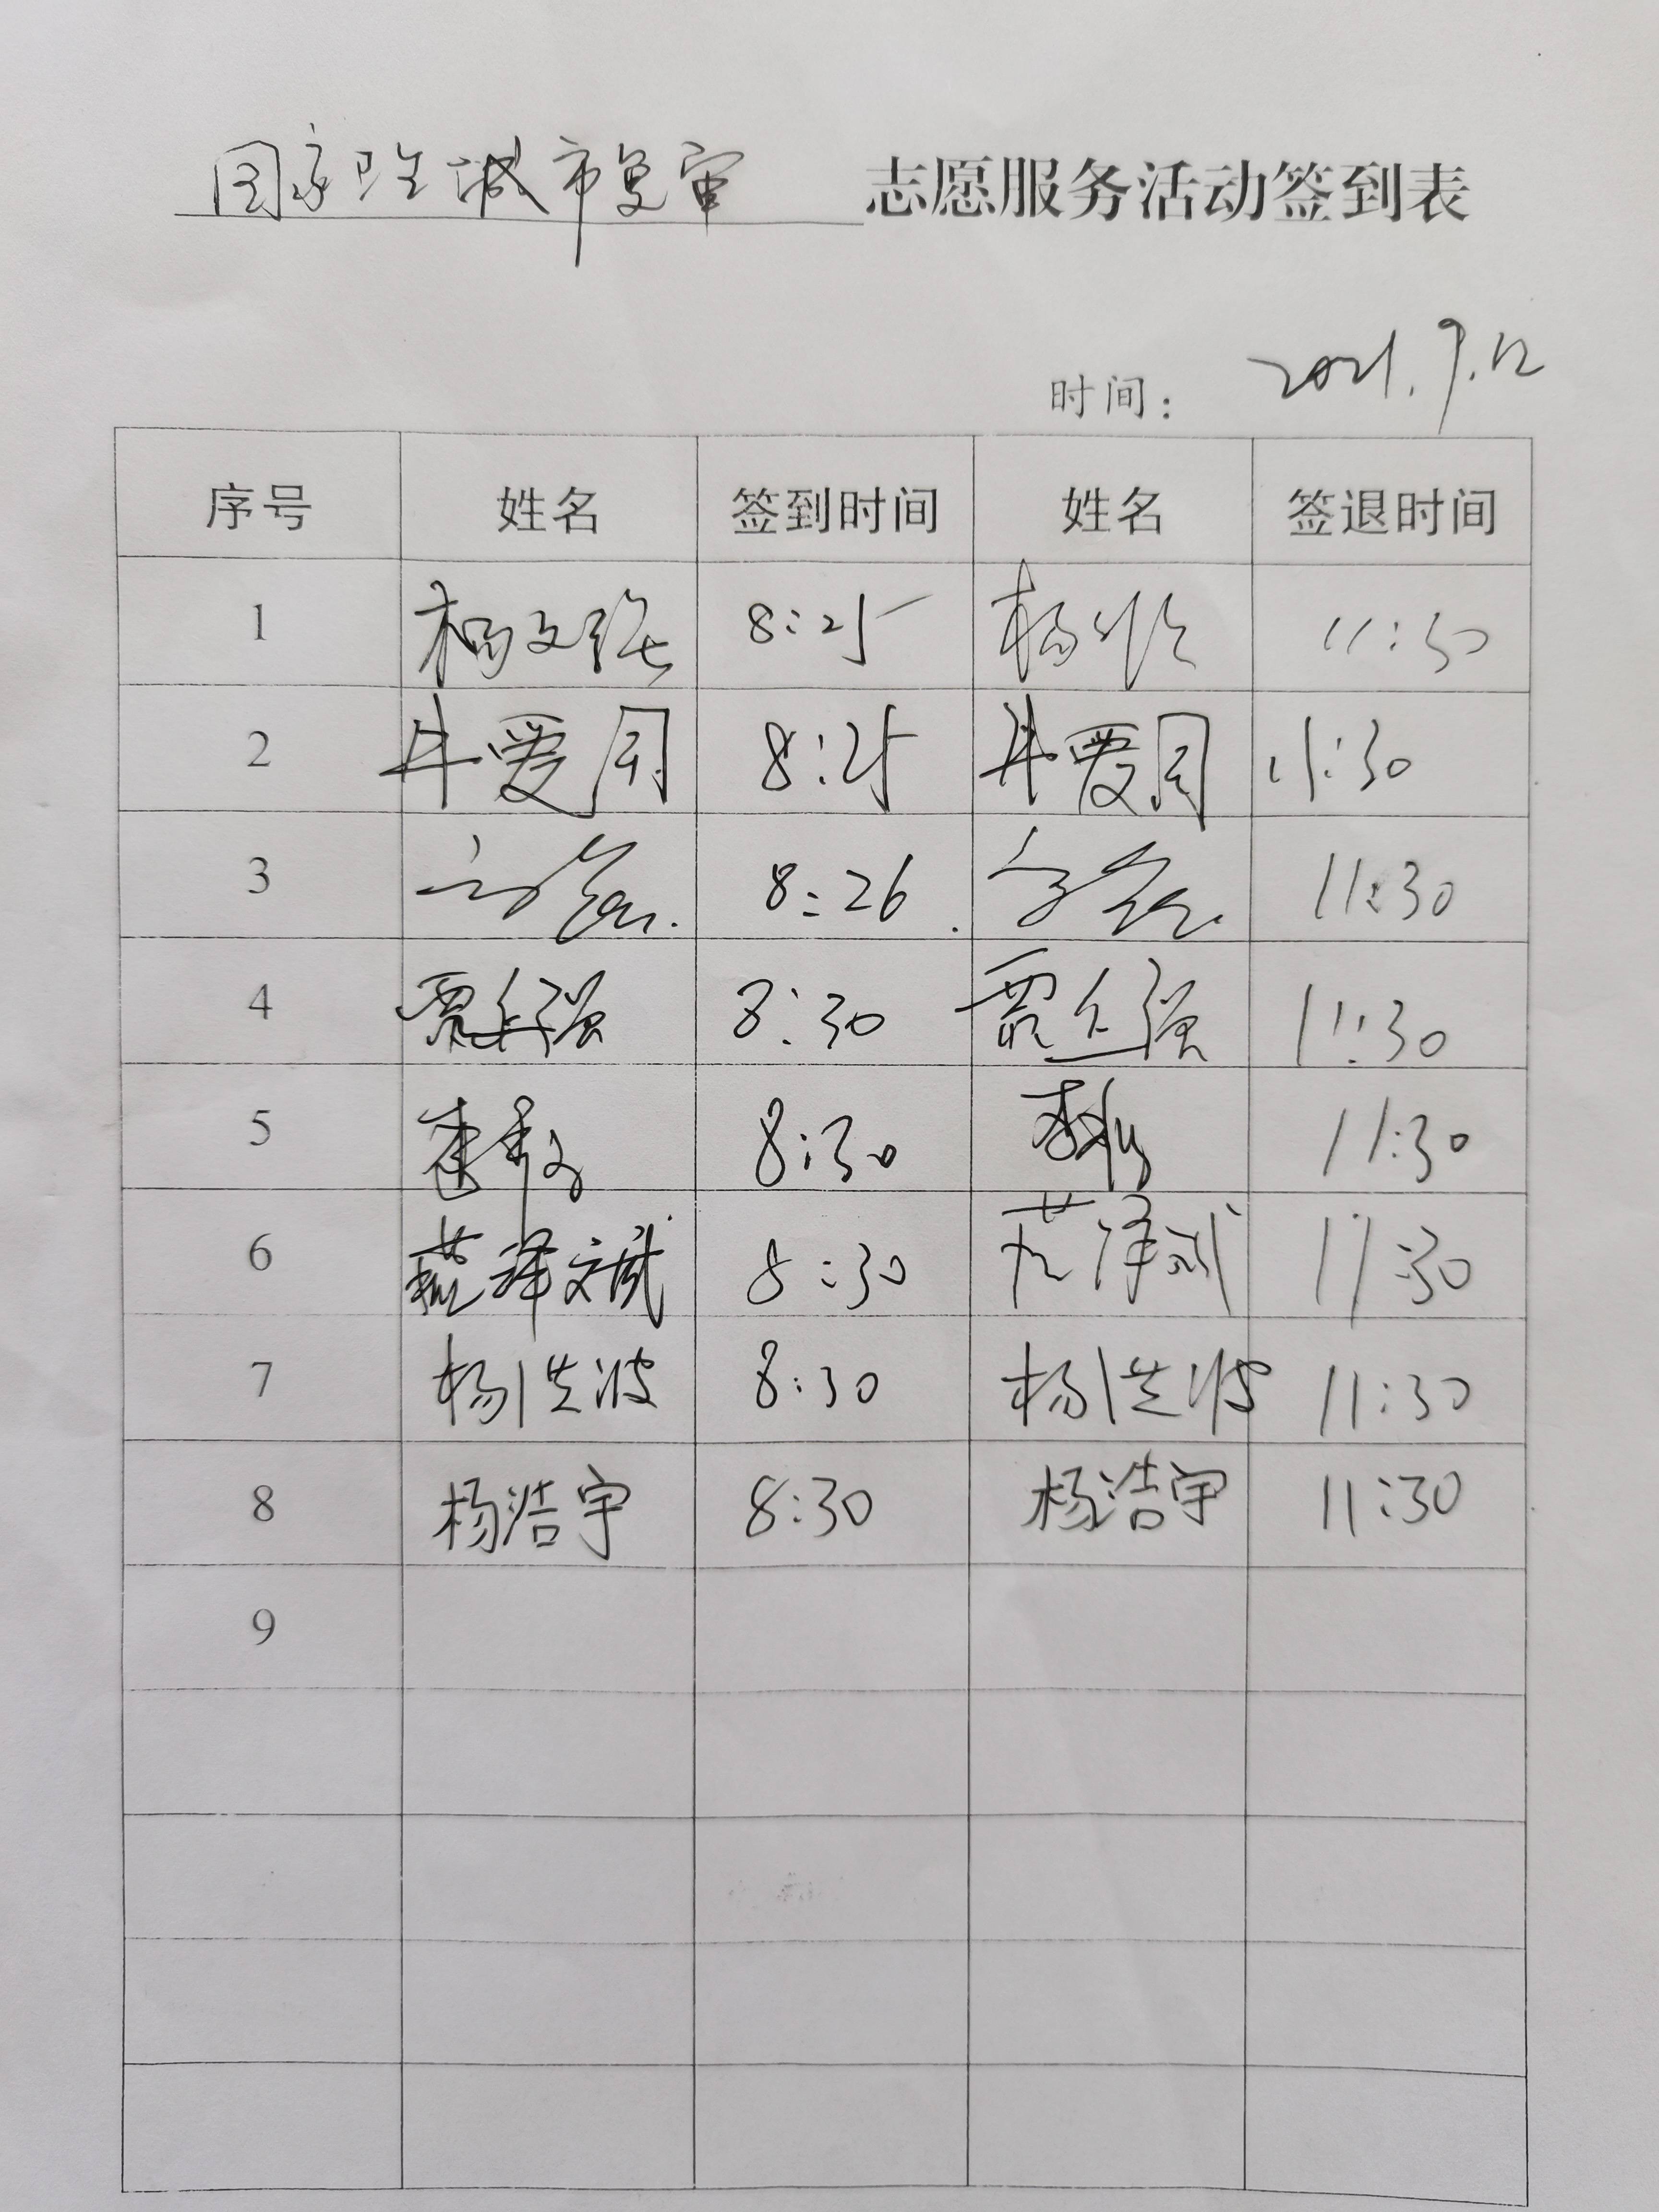 国家卫生城市复审 志愿服务活动签到表
时间： 2021.9.12
序号 姓名 签到时间 姓名 签退时间
1 杨文 8:25 杨 11:30
2 牛爱国 8:25 牛爱国 11:30
3 8:26 11:30
4 贾 强 8:30 贾 强 11:30
5 8:30 11:30
6 范泽斌 8:30 范泽斌 11:30
7 杨洪波 8:30 杨洪波 11:30
8 杨浩宇 8:30 杨浩宇 11:30
9